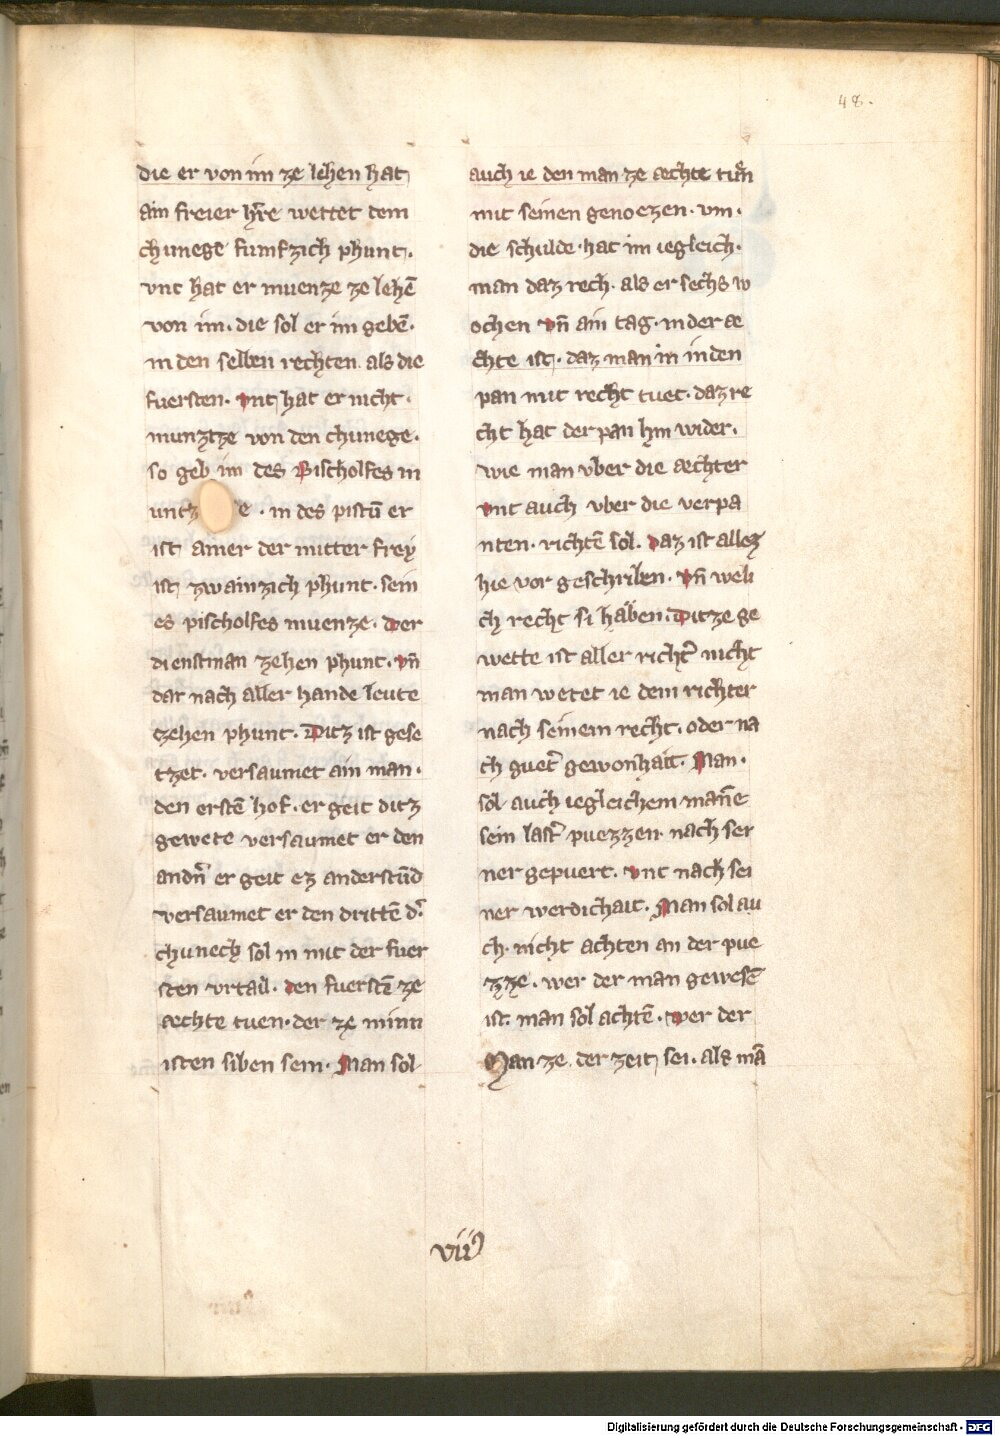 48.
die er von im ze lehen hat
ain freier hr̄e wettet dem
chunege fumfzich phunt.
vnt hat er muenze ze lehē
von im. die sol er im gebē.
in den selben rechten. als die
fuersten. vnt hat er nicht.
munztze von den chunege.
so geb im des Bischolfes m
untz e. in des pistū er
ist amer der mitter frey
ist zwainzich phunt. sein
es pischolfes muenze. der
dienstman zehen phunt. vn̄
dar nach aller hande leute
czehen phunt. Ditz ist gese
tzet. versaumet ain man.
den erstē hof. er geit ditz
gewete versaumet er den
andn̄ er geit ez anderstūd
versaumet er den drittē d͛.
chunech sol in mit der fuer
sten vrtail. den fuerstē ze
aechte tuen. der ze minn
isten siben sein. Man sol
auch ie den man ze aechte tůn
mit seinen genoezen. vm.
die schulde. hat im iegleich.
man daz rech. als er sechs w
ochen vn̄ ain tag. in der ae
chte ist. daz man in in den
pan mit recht tuet. daz re
cht hat der pan hin wider.
wie man vber die aechter
vnt auch vber die verpa
nten. richtē sol. Daz ist allez
hie vor geschriben. vn̄ weli
ch recht si haben. Ditze ge
wette ist aller richt͛ nicht
man wetet ie dem richter
nach seinem recht. oder na
ch guet͛ gewonhait. Man.
sol auch iegleichem manē
sein last͛ puezzen. nach sei
ner gepuert. vnt nach sei
ner werdichait. Man sol au
ch. nicht achten an der pue
zze. wer der man gewesē
ist. man sol achtē. wer der
Man ze. der zeit sei. als mā
viiꝰ
Digitalisierung gefördert durch die Deutsche Forschungsgemeinschaft - DFG